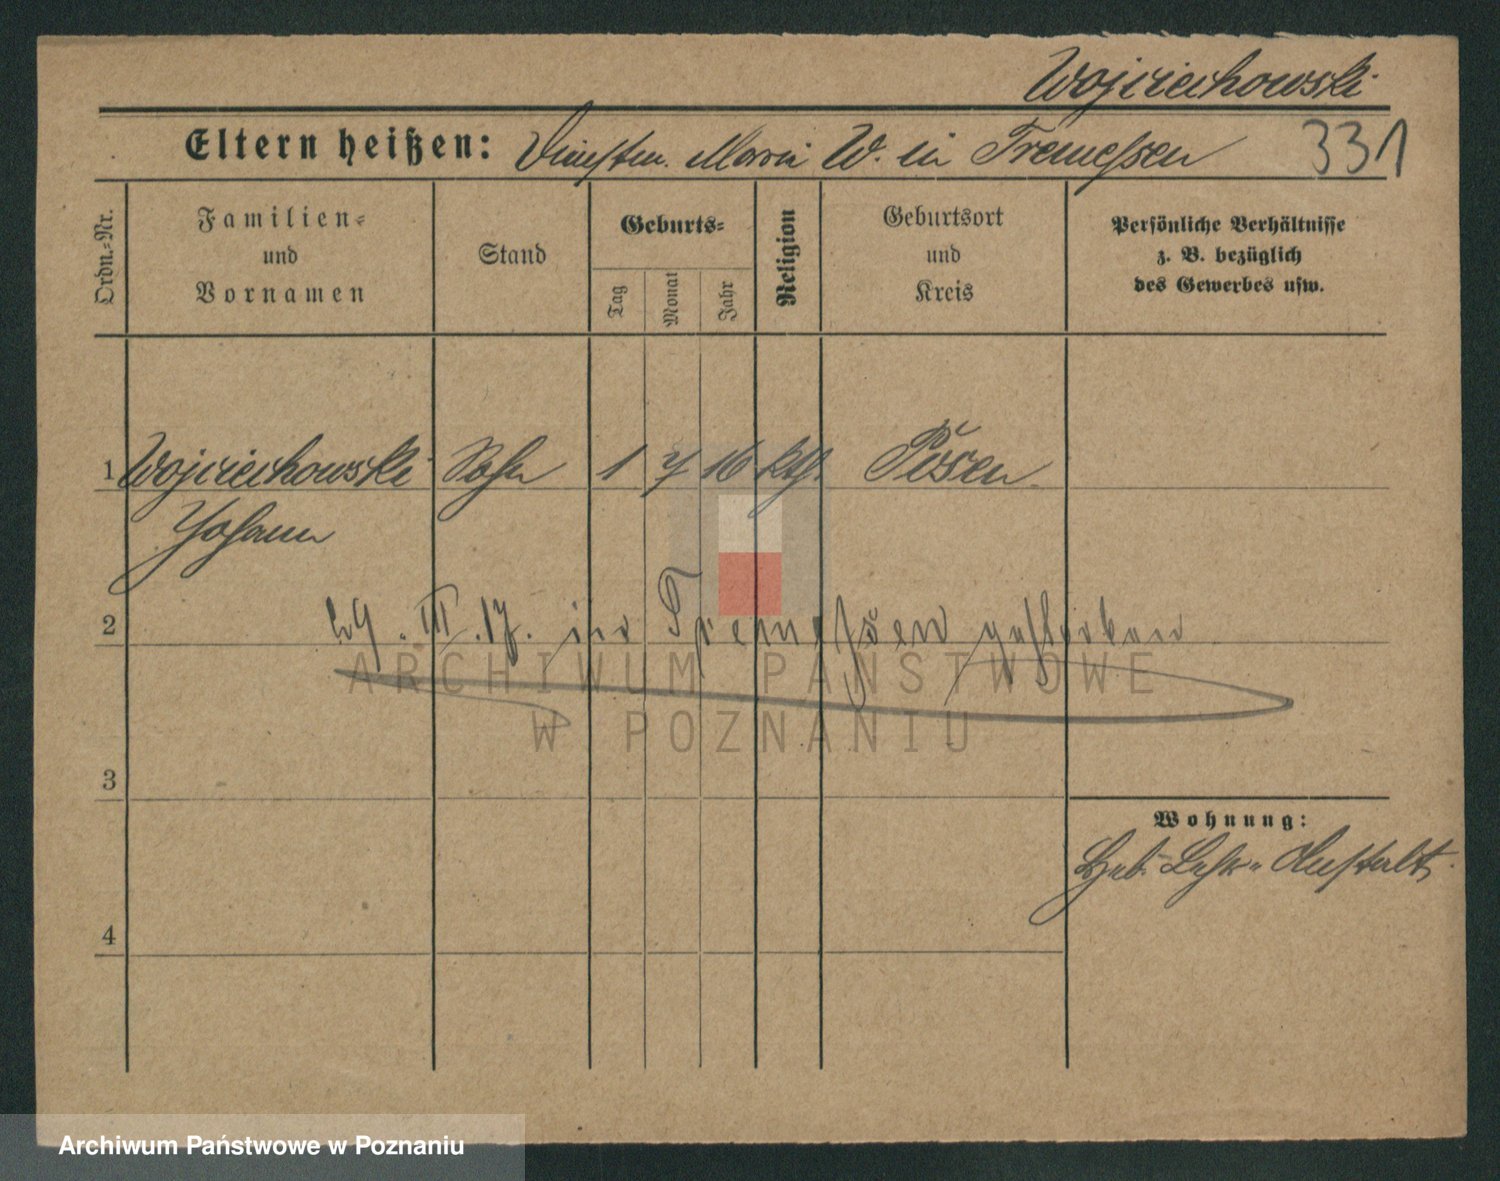 Wojciechowski
Eltern heißen: Dienstm. Maria W. in Tremessen 331
Ordn.=Nr.
Familien=
und
Vornamen
Stand
Geburts=
Tag
Monat
Jahr
Religion
Geburtsort
und
Kreis
Persönliche Verhältnisse
z. B. bezüglich
des Gewerbes usw.
1 Wojciechowski Sohn 1 7 16 kth. Posen
Johann
2 29. III. 17. in Tremeßen gestorben
ARCHIWUM PAŃSTWOWE
W POZNANIU
3
Wohnung:
Heb. Lehr- Anstalt.
4
Archiwum Państwowe w Poznaniu